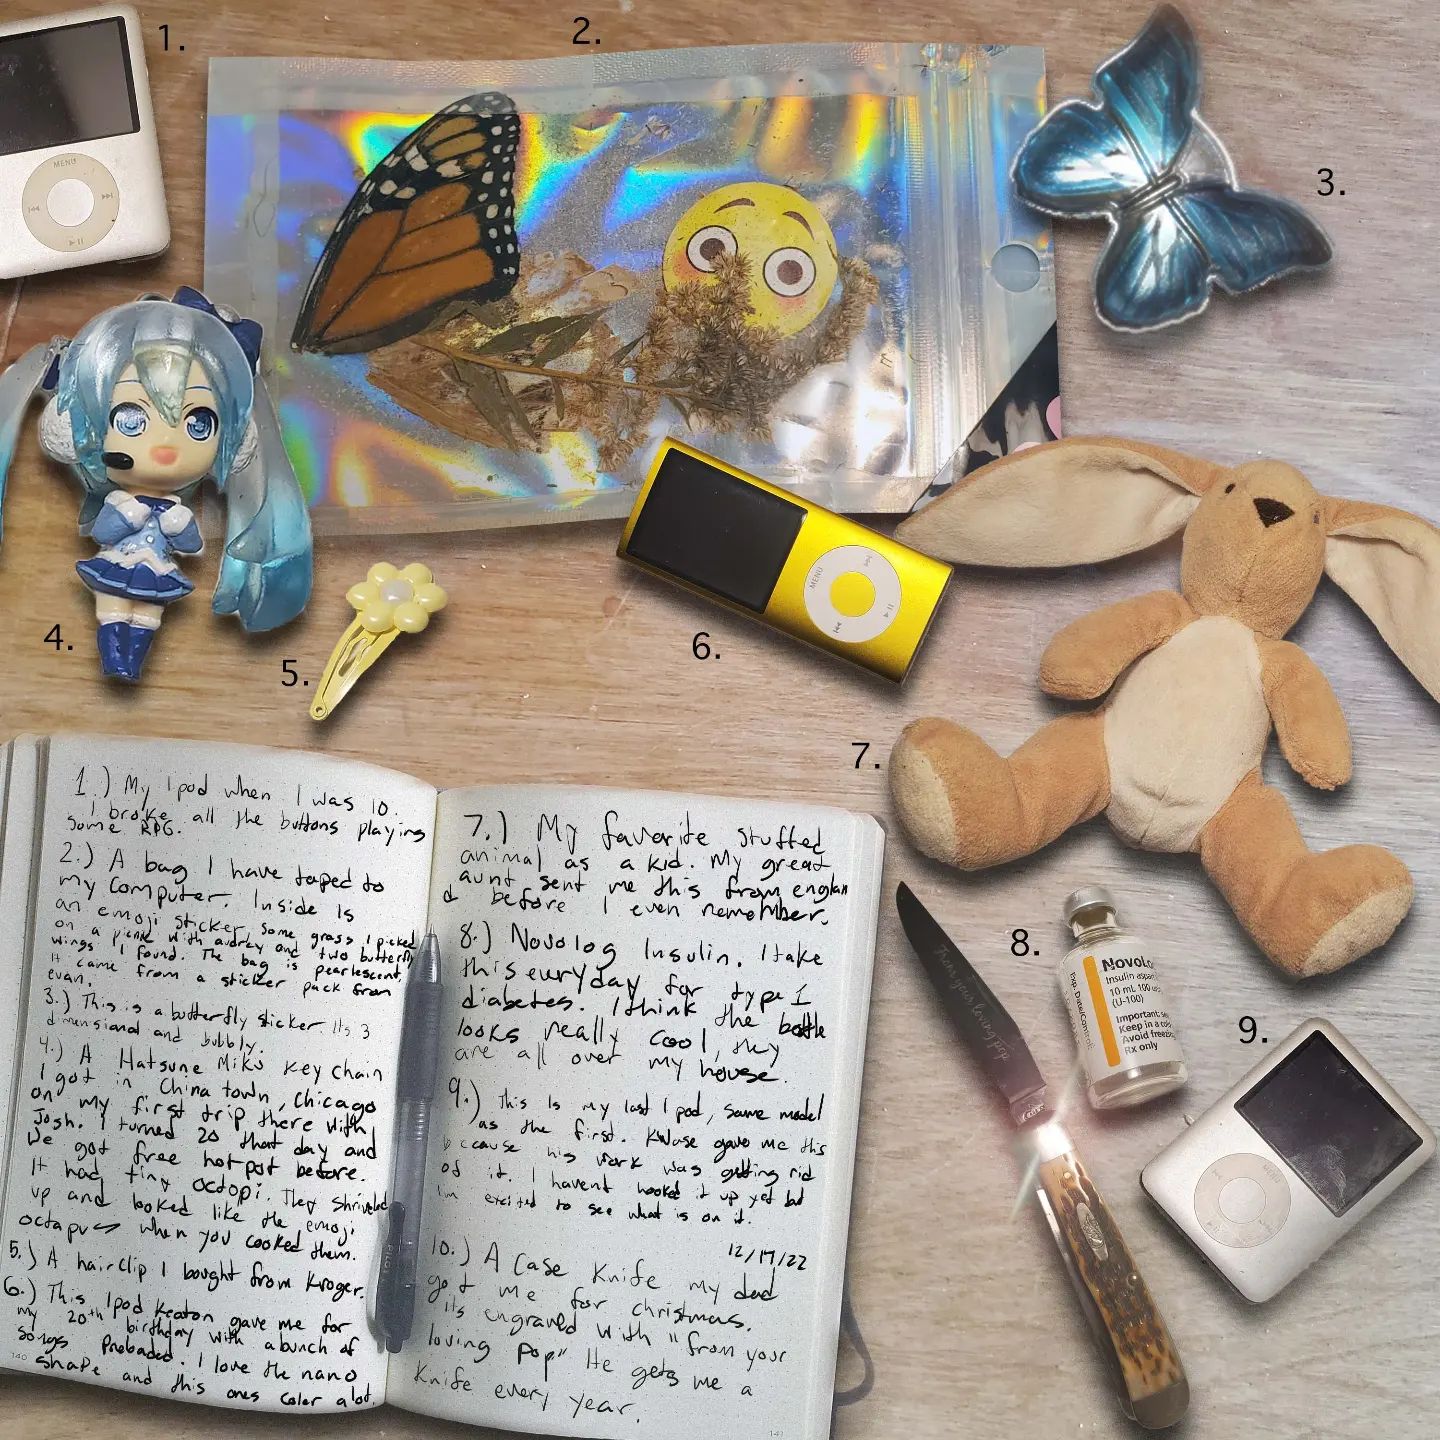 1.
2.
3.
4.
5.
6.
7.
8.
9.
MENU
MENU
MENU
From your loving pop
NovoLo
Insulin aspa
10 mL 100 u
(U-100)
Important: se
Keep in a co
Avoid freezi
Rx only
Exp. Date/Control:
1.) My Ipod when I was 10.
I broke all the buttons playing
some RPG.
2.) A bag I have taped to
my computer. Inside is
an emoji sticker, some grass I picked
on a picnic with audrey and two butterfly
wings I found. The bag is pearlescent,
it came from a sticker pack from
evan.
3.) This is a butterfly sticker its 3
dimensional and bubbly.
4.) A Hatsune Miku key chain
I got in China town, Chicago
on my first trip there with
Josh. I turned 20 that day and
we got free hotpot before.
It had tiny octopi. They shriveled
up and looked like the emoji
octopus when you cooked them.
5.) A hairclip I bought from Kroger.
6.) This Ipod Keaton gave me for
my 20th birthday with a bunch of
songs Preloaded. I love the nano
shape and this ones color alot.
140
PILOT
7.) My favorite stuffed
animal as a kid. My great
aunt sent me this from englan
d before I even remember.
8.) Novolog Insulin. I take
this everyday for type 1
diabetes. I think the bottle
looks really cool, they
are all over my house.
9.) This is my last Ipod, same model
as the first. KWase gave me this
because his work was getting rid
of it. I havent hooked it up yet but
im excited to see what is on it.
12/17/22
10.) A Case Knife my dad
got me for christmas.
its engraved with "from your
loving pop" He gets me a
Knife every year.
141